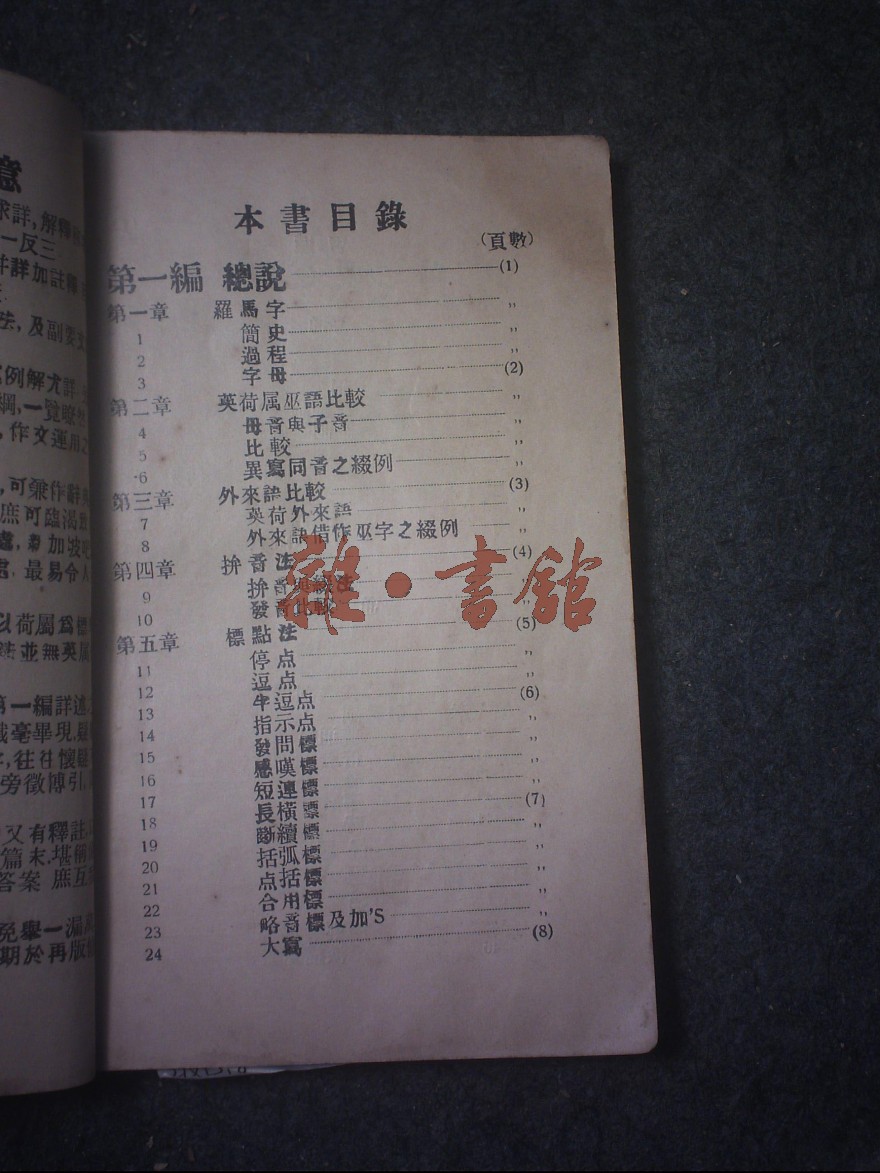 本書目錄
(頁數)
第一編 總說 (1)
第一章 羅馬字 ,,
1 簡史 ,,
2 過程 ,,
3 字母 (2)
第二章 英荷属巫語比較 ,,
4 母音與子音 ,,
5 比較 ,,
6 異寫同音之綴例 ,,
第三章 外來語比較 (3)
7 英荷外來語 ,,
8 外來語借作巫字之綴例 ,,
第四章 拚音法 (4)
9 拚音
10 發音比較 ,,
第五章 標點法 (5)
11 停点 ,,
12 逗点 ,,
13 半逗点 (6)
14 指示点 ,,
15 發問標 ,,
16 感嘆標 ,,
17 短連標 ,,
18 長橫標 (7)
19 斷續標 ,,
20 括弧標 ,,
21 点括標 ,,
22 合用標 ,,
23 略音標及加'S ,,
24 大寫 (8)
雜·書館
意
求詳,解釋
一反三
詳加註釋
法,及副
例解尤詳
綱,一覽瞭
作文運用之
,可兼作辭
庶可臨渴
處,
處,最易令人
以荷属為標
並無英属
第一編詳述
毫畢現
,往往懷疑
旁徵博引
又有釋註
篇末,堪
答案 庶互
免舉一漏
期於再版